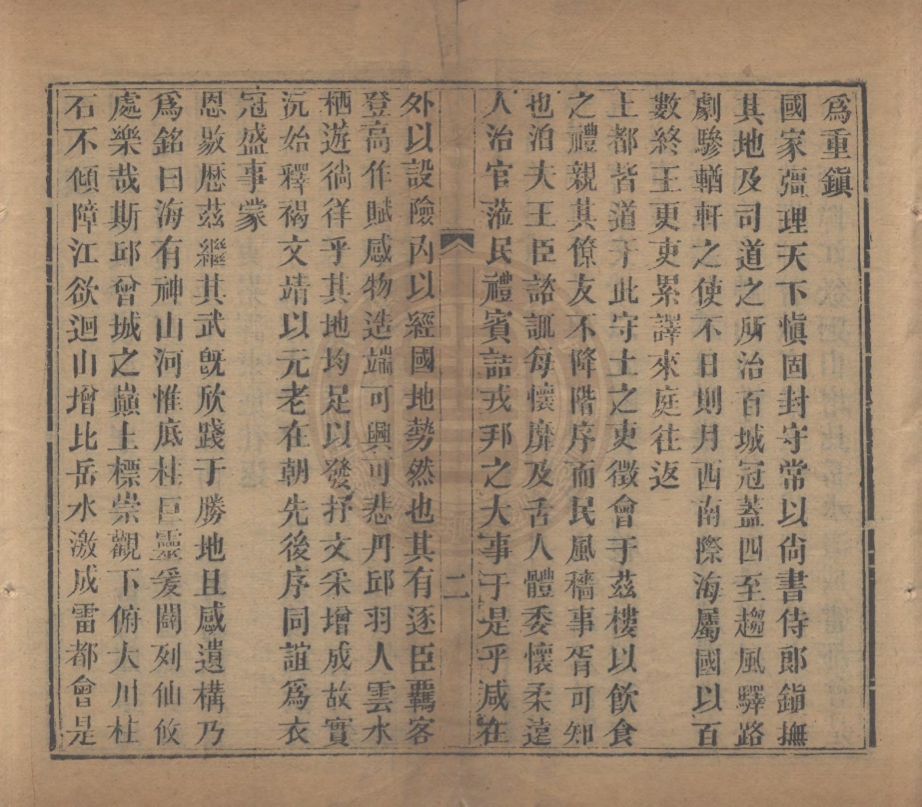 爲重鎭
國家彊理天下愼固封守常以尙書侍郎鎭撫
其地及司道之所治百城冠蓋四至趨風驛路
劇驂輶軒之使不日則月西南際海屬國以百
數終王更吏累譯來庭往返
上都皆道于此守土之吏徵會于茲樓以飮食
之禮親其僚友不降階序而民風穡事胥可知
也洎夫王臣諮諏每懷靡及舌人體委懷柔遠
人治官蒞民禮賓詰戎邦之大事于是乎咸在
二
外以設險內以經國地勢然也其有逐臣羈客
登高作賦感物造端可興可悲丹邱羽人雲水
栖遊徜徉乎其地均足以發抒文采增成故實
沅始釋褐文靖以元老在朝先後序同誼爲衣
冠盛事蒙
恩敭歷茲繼其武旣欣踐于勝地且感遺構乃
爲銘曰海有神山河惟底柱巨靈爰闢列仙攸
處樂哉斯邱曾城之巔上標崇觀下俯大川柱
石不傾障江欲迴山增比岳水激成雷都會是